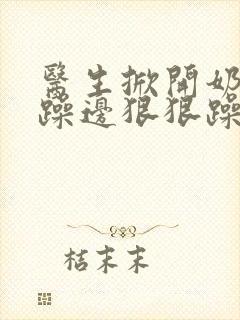 醫生掀開奶
躁邊狠狠躁
桔末末